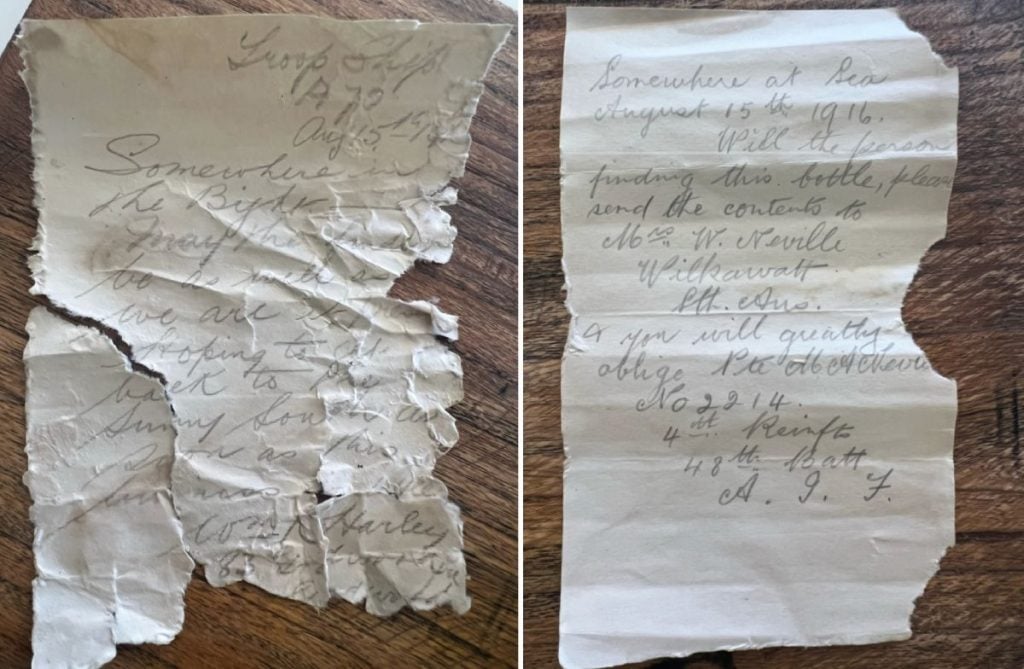 Troop Ship
A 70
Aug 15th 19
Somewhere in
the Bight
May the
be as well as
we are
Hoping to
back to
Sunny
soon as this
Wm K Harley
Somewhere at Sea
August 15th 1916.
Will the person
finding this bottle, please
send the contents to
Mrs W. Neville
Wilkawatt
Sth. Aus.
& you will greatly
oblige Pte M A Nevil
No 2214.
4th Reinfts
48th Batt
A. I. F.